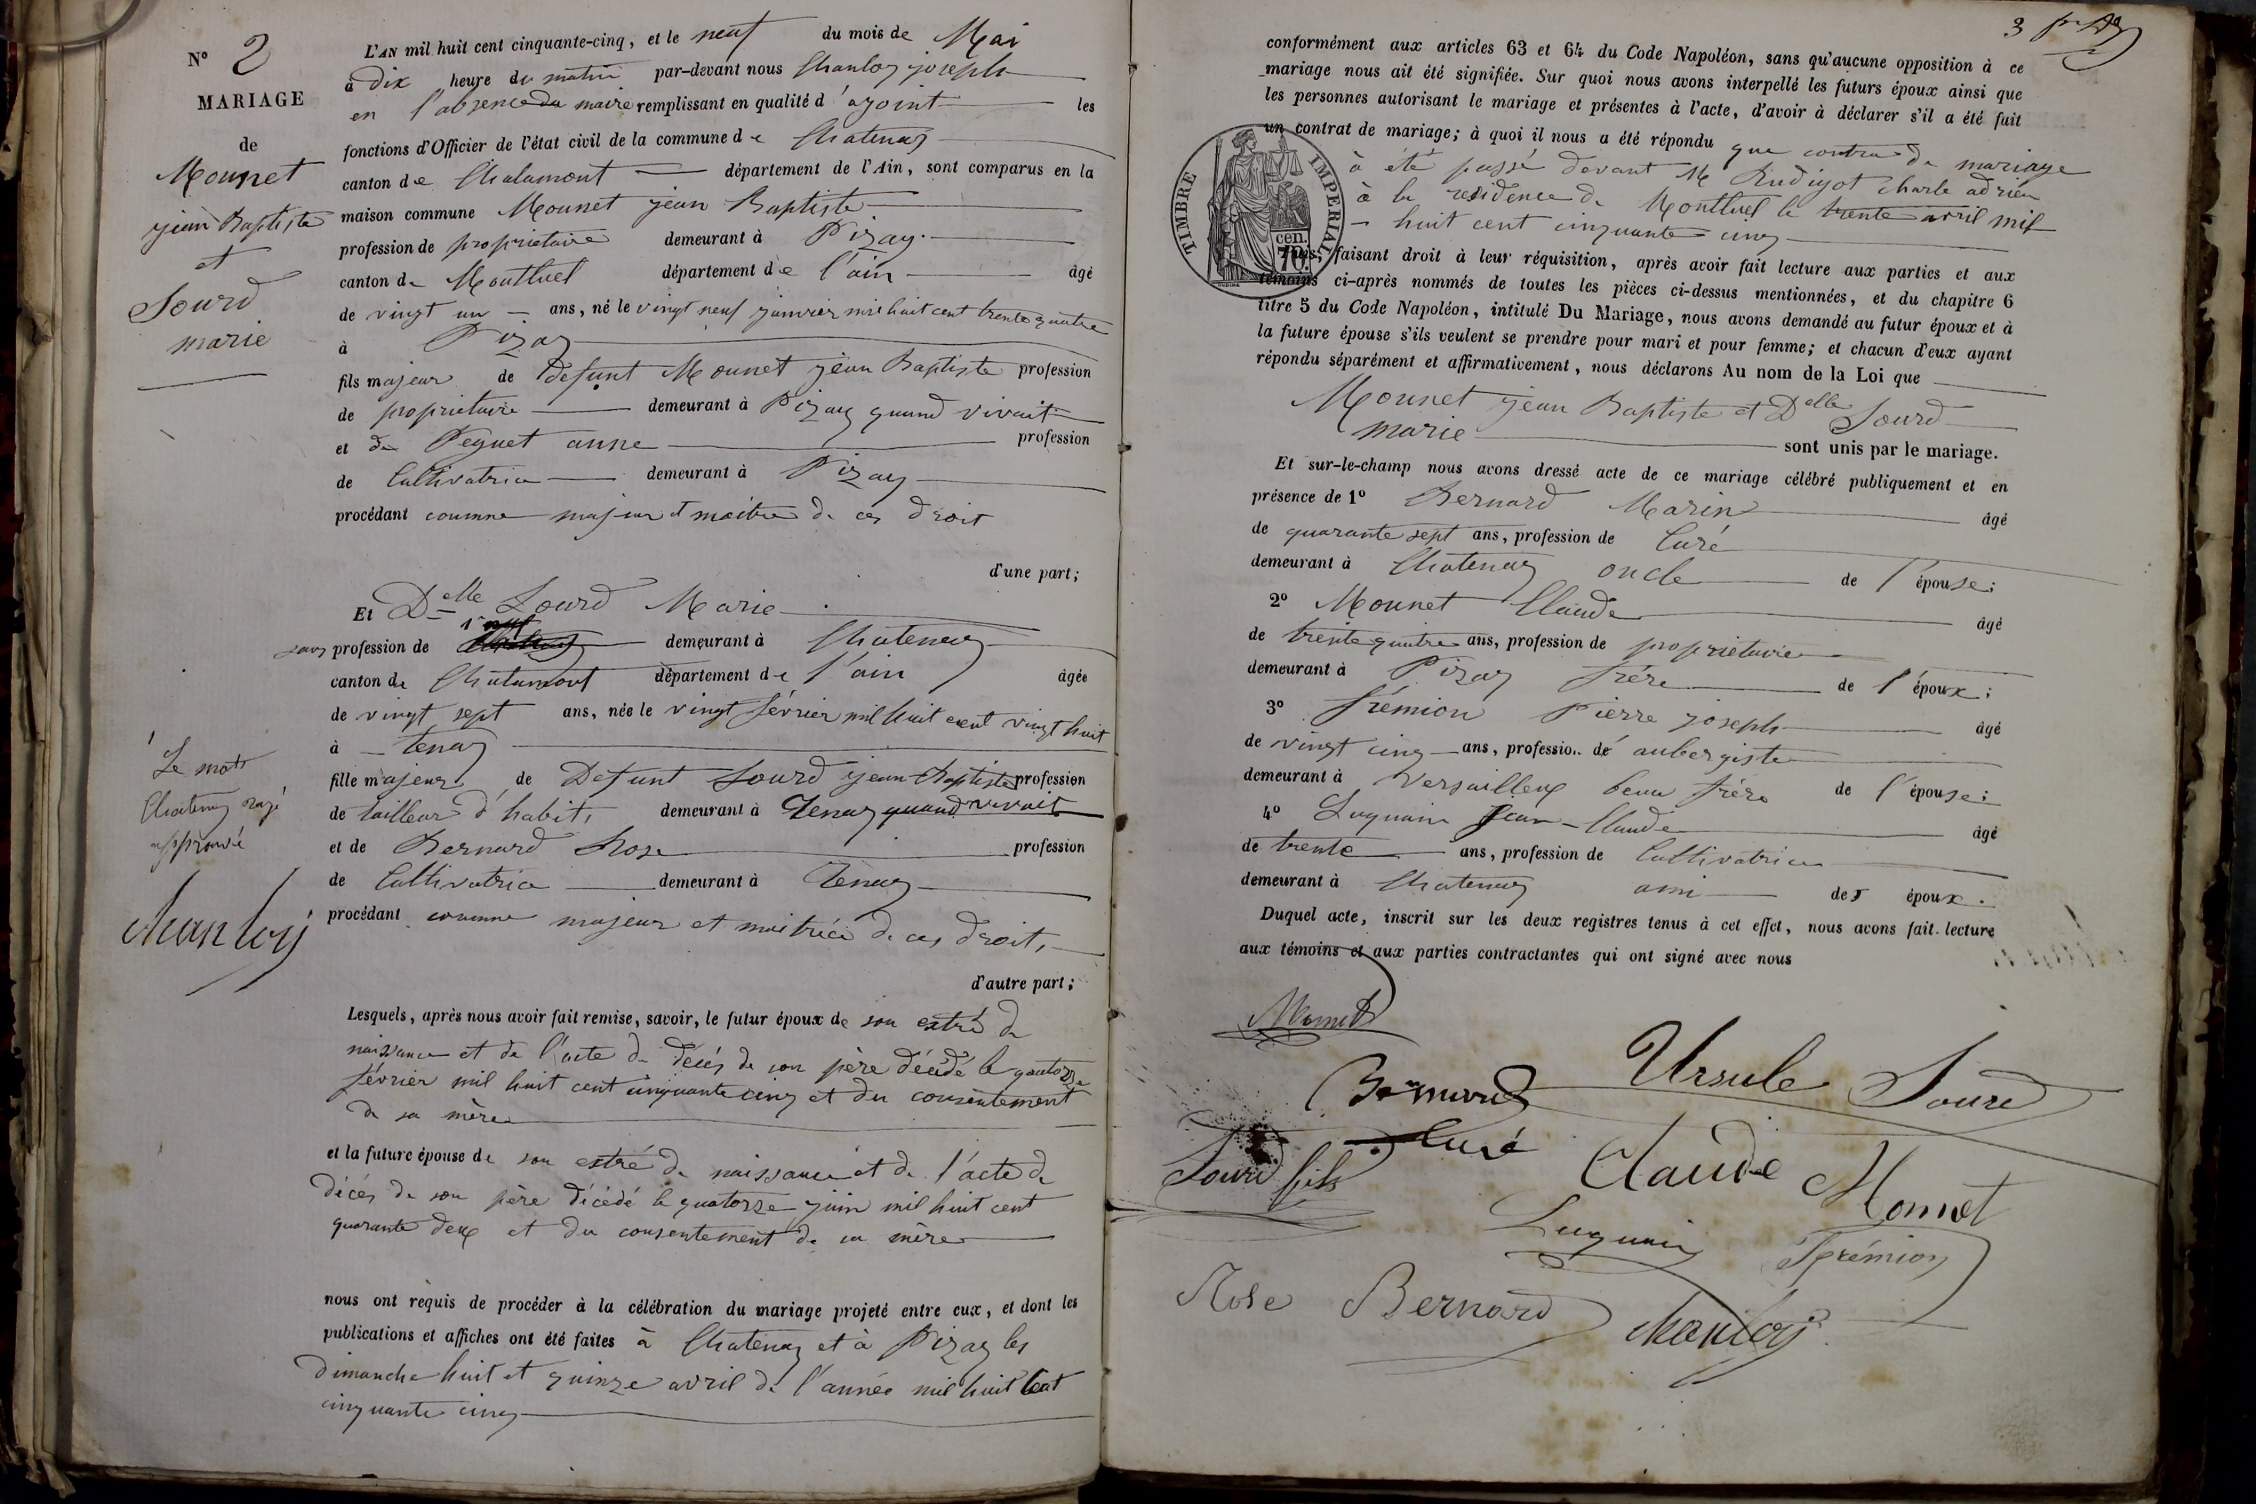 N° 2
MARIAGE
de
Mounet
jean Baptiste
et
Sourd
marie
L'AN mil huit cent cinquante-cinq, et le neuf du mois de Mai
à dix heure du matin par-devant nous Chanloy joseph
en l'absence du maire remplissant en qualité d'ajoint les
fonctions d'Officier de l'état civil de la commune de Chatenay
canton de Chalamont département de l'Ain, sont comparus en la
maison commune Mounet jean Baptiste
profession de propriétaire demeurant à Pizay.
canton de Montluel département de l'ain âgé
de vingt un ans, né le vingt neuf janvier mil huit cent trente quatre
à Pizay
fils majeur de defunt Mounet jean Baptiste profession
de propriétaire demeurant à Pizay quand vivait
et de Peguet anne profession
de Cultivatrice demeurant à Pizay
procédant coumme majeur et maitre de ces droit
d'une part;
Et Delle Sourd Marie
sans profession de demeurant à Chatenay
canton de Chalamont département de l'ain âgée
de vingt sept ans, née le vingt février mil huit cent vingt huit
à Tenay
fille majeur de Defunt Sourd jean Baptiste profession
de tailleur d'habits demeurant à Tenay quand vivait
et de Bernard Rose profession
de Cultivatrice demeurant à Tenay
procédant coumme majeur et maitrice de ces droits
d'autre part;
1 Le mot
Chatenay rayé
approuvé
Chanloy
Lesquels, après nous avoir fait remise, savoir, le futur époux de son extré de
naissance et de l'acte de décés de son père décédé le quatorze
février mil huit cent cinquante cinq et du consentement
de sa mère
et la future épouse de son extré de naissance et de l'acte de
décés de son père décédé le quatorze juin mil huit cent
quarante deux et du consentement de sa mère
nous ont requis de procéder à la célébration du mariage projeté entre eux, et dont les
publications et affiches ont été faites à Chatenay et à Pizay les
dimanche huit et quinze avril de l'année mil huit Cent
cinquante cinq
3
conformément aux articles 63 et 64 du Code Napoléon, sans qu'aucune opposition à ce
mariage nous ait été signifiée. Sur quoi nous avons interpellé les futurs époux ainsi que
les personnes autorisant le mariage et présentes à l'acte, d'avoir à déclarer s'il a été fait
un contrat de mariage; à quoi il nous a été répondu que contra de mariage
à été passé devant M Rudigot Charle adrien
à la residence de Montluel le trente avril mil
huit cent cinquante cinq
TIMBRE IMPERIAL
70 cen.
Puis, faisant droit à leur réquisition, après avoir fait lecture aux parties et aux
témoins ci-après nommés de toutes les pièces ci-dessus mentionnées, et du chapitre 6
titre 5 du Code Napoléon, intitulé Du Mariage, nous avons demandé au futur époux et à
la future épouse s'ils veulent se prendre pour mari et pour femme; et chacun d'eux ayant
répondu séparément et affirmativement, nous déclarons Au nom de la Loi que
Mounet jean Baptiste et Delle Sourd
marie sont unis par le mariage.
Et sur-le-champ nous avons dressé acte de ce mariage célébré publiquement et en
présence de 1° Bernard Marin âgé
de quarante sept ans, profession de Curé
demeurant à Chatenay oncle de l'épouse;
2° Mounet Claude âgé
de trente quatre ans, profession de propriétaire
demeurant à Pizay frère de l'époux;
3° frémion Pierre joseph âgé
de vingt cinq ans, profession de aubergiste
demeurant à Versailleux beau frère de l'épouse;
4° Luquain Jean-Claude âgé
de trente ans, profession de Cultivatrice
demeurant à Chatenay ami des époux.
Duquel acte, inscrit sur les deux registres tenus à cet effet, nous avons fait lecture
aux témoins et aux parties contractantes qui ont signé avec nous
Mounet
Ursule Sourd
Bernard
Curé
Sourd fils
Claude Mounet
Luquain
frémion
Rose Bernard
Chanloy